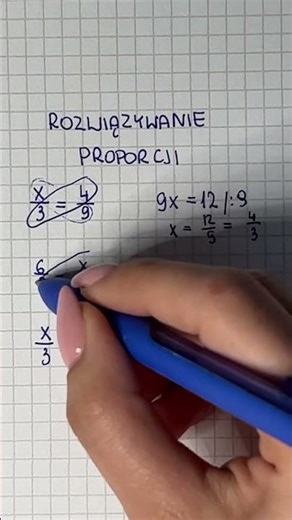 ROZWIĄZYWANIE
PROPORCJI
x/3 = 4/9
9x = 12 /:9
x = 12/9 = 4/3
6 x
x/3